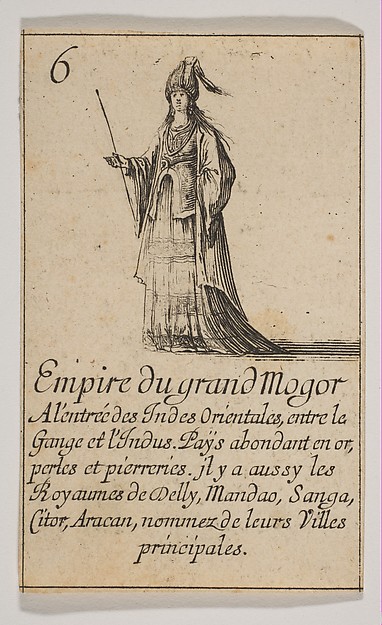 6
Empire du grand Mogor
A l'entreé des Indes Orientales, entre le
Gange et l'Indus. Paÿs abondant en or,
perles et pierreries. jl y a aussy les
Royaumes de Delly, Mandao, Sanga,
Citor, Aracan, nommez de leurs Villes
principales.